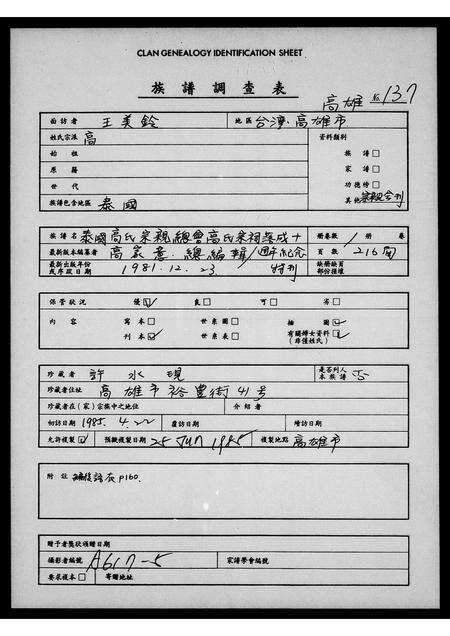 CLAN GENEALOGY IDENTIFICATION SHEET
族譜調查表
高雄 No. 137
面訪者 王美銓 地區 台灣.高雄市
姓氏宗派 高 資料類別
始祖 族譜□
原籍 家譜□
世代 功德榜□
族譜包含地區 泰國 其他 宗親会刊
族譜名 泰國高氏宗親總會高氏宗祠落成十 冊卷數 1 冊 卷
最新版本編纂者 高 總編輯/週年紀念 頁數 216
最新出版年份或序跋日期 1981.12.23 特刊 缺冊缺頁部份種壞
保管狀況 優☑ 良□ 可□ 劣□
內容 寫本□ 世系圖□ 插圖☑
刊本☑ 世系表□ 有關婦女資料☑
(非僅姓氏)
珍藏者 許水現 是否列入本族譜 否
珍藏者住址 高雄市裕豐街41号
珍藏者在(家)宗族中之地位 介紹者
初訪日期 1985.4.22 覆訪日期 續訪日期
允許複製☑ 預擬複製日期 25 JUN 1985 複製地點 高雄市
附註 編後語在p160.
贈予者獎狀頒贈日期
攝影者編號 A617-5 家譜學會編號
要求複本□ 寄贈地址